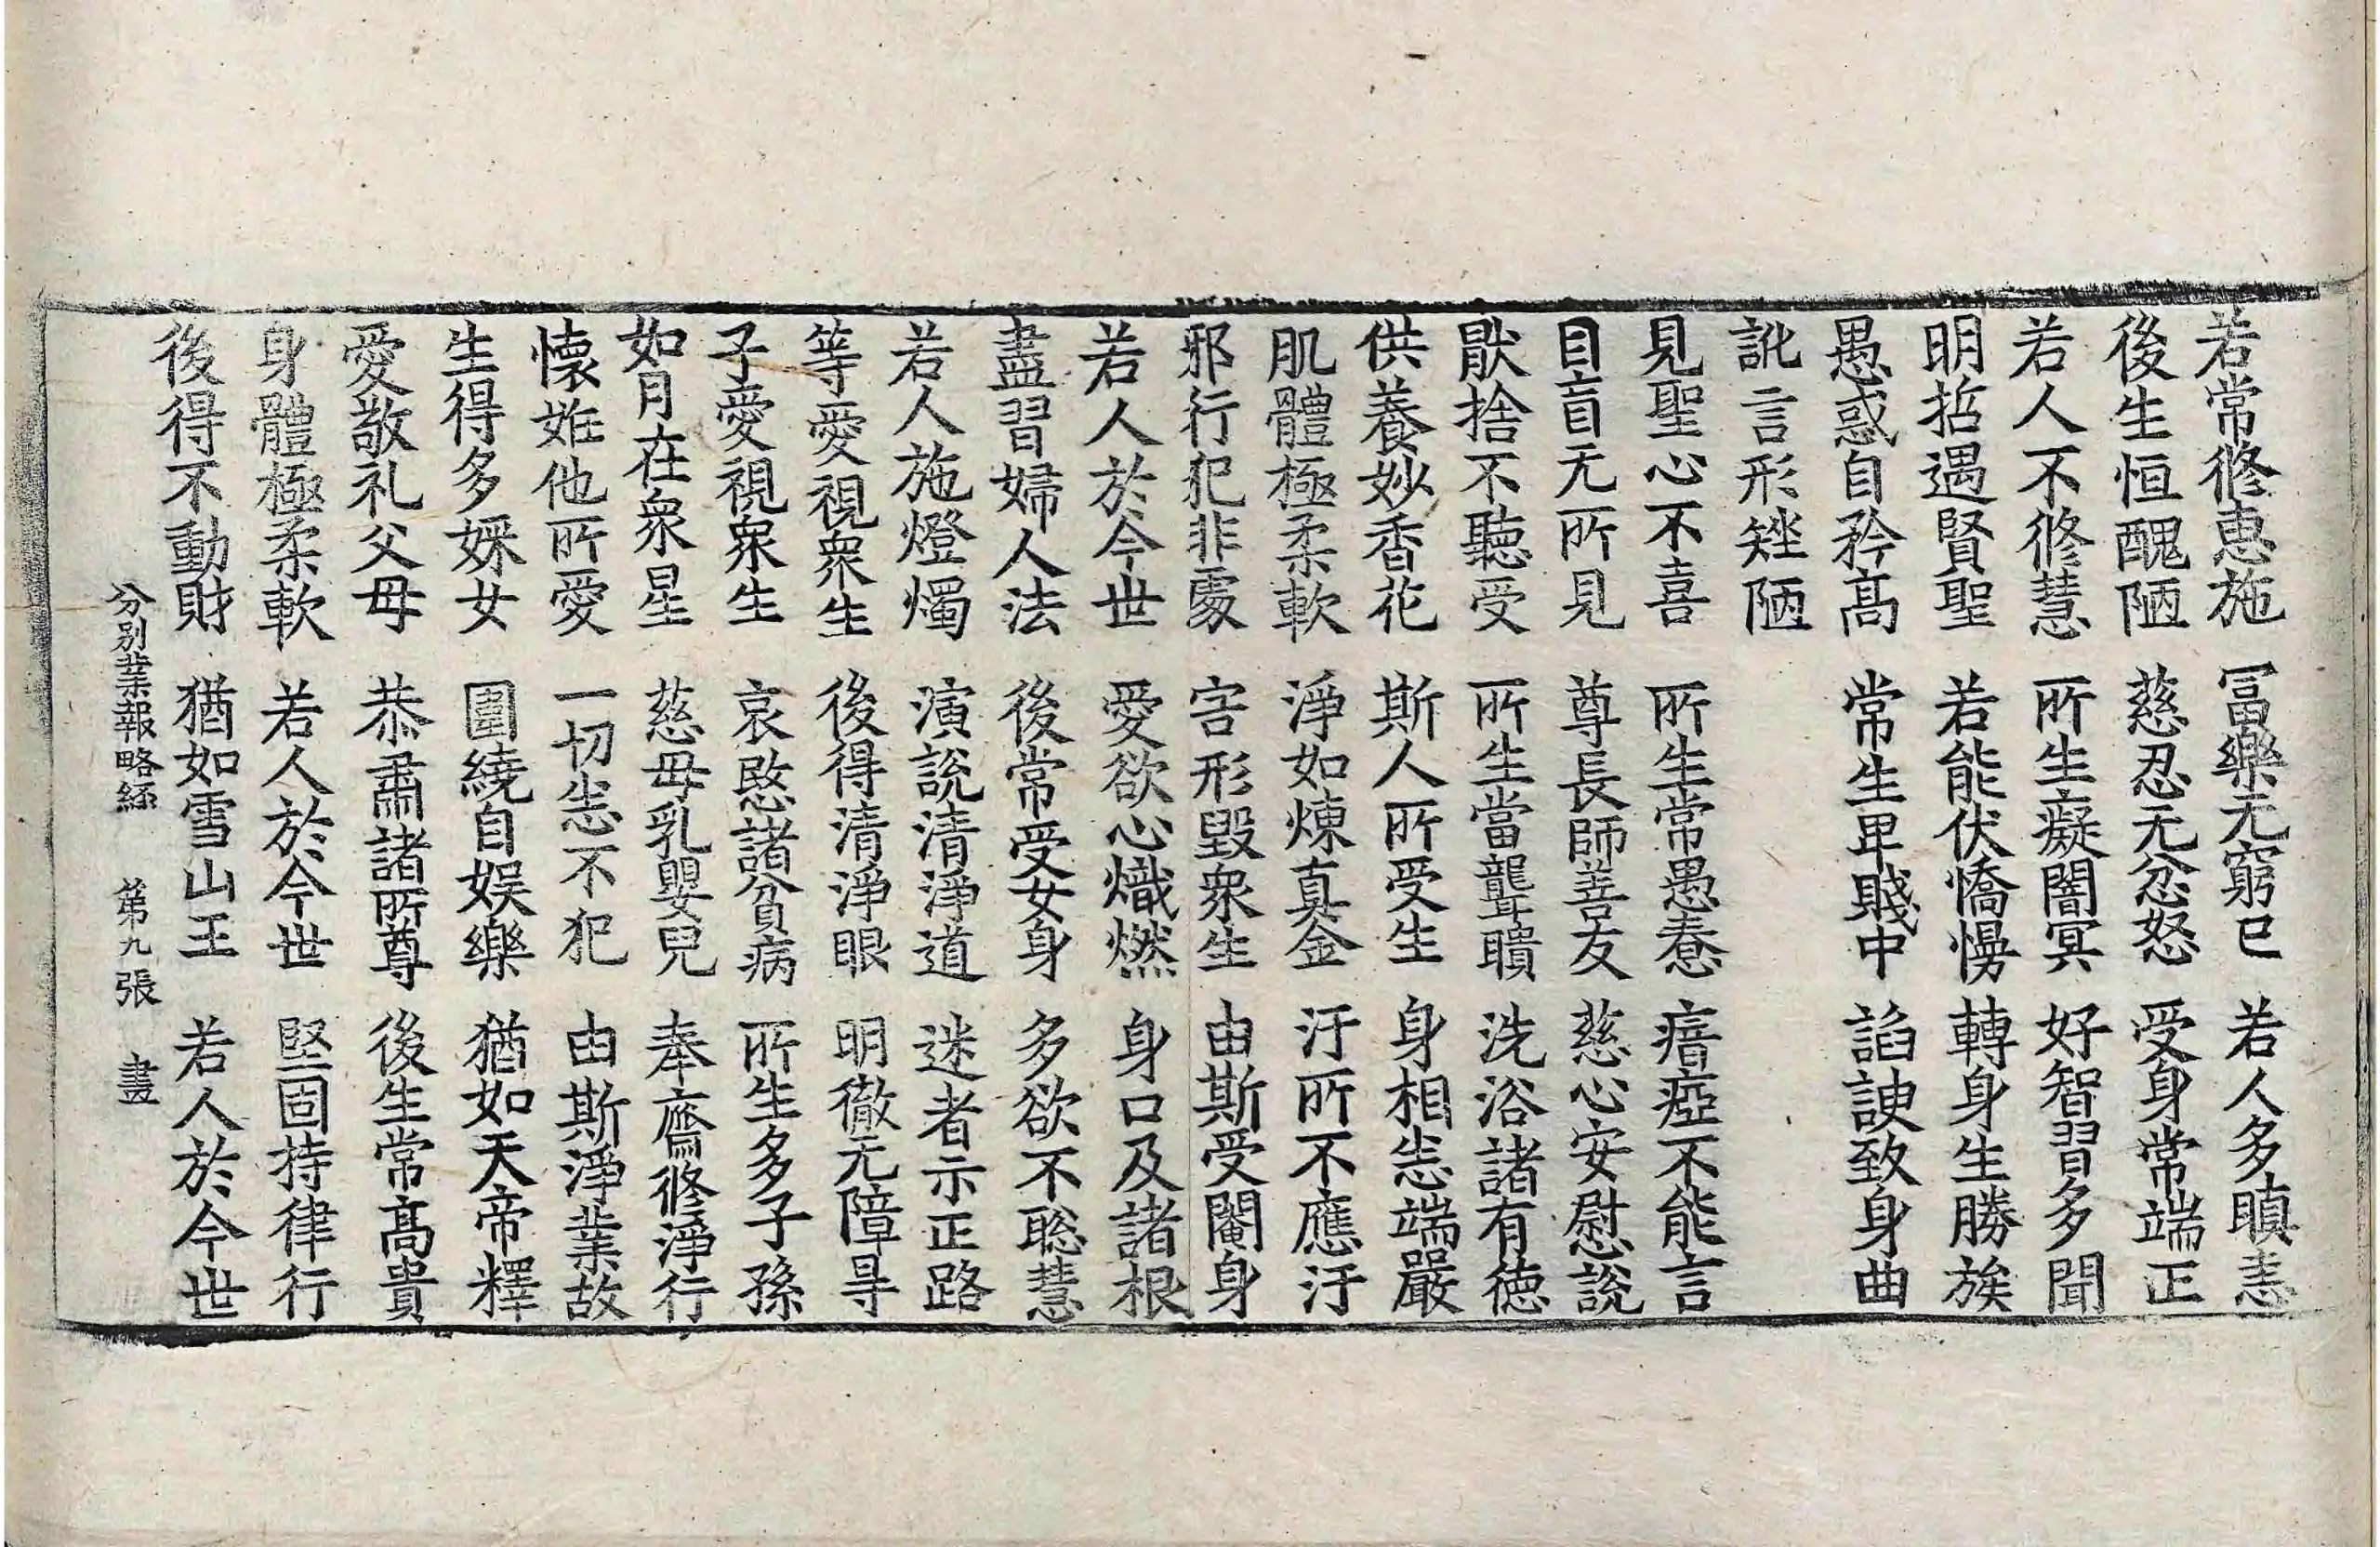 若常修惠施 冨樂无窮已 若人多瞋恚
後生恒醜陋 慈忍无忿怒 受身常端正
若人不修慧 所生癡闇冥 好智習多聞
明哲遇賢聖 若能伏憍慢 轉身生勝族
愚惑自矜髙 常生卑賤中 諂諛致身曲
訛言形矬陋
見聖心不喜 所生常愚惷 瘖瘂不能言
目盲无所見 尊長師善友 慈心安慰說
猒捨不聽受 所生當聾聵 洗浴諸有德
供養妙香花 斯人所受生 身相恙端嚴
肌體極柔軟 淨如煉真金 汙所不應汙
邪行犯非處 害形毀衆生 由斯受閹身
若人於今世 愛欲心熾燃 身口及諸根
盡習婦人法 後常受女身 多欲不聡慧
若人施燈燭 演說清淨道 迷者示正路
等愛視衆生 後得清淨眼 明徹无障㝵
子愛視衆生 哀愍諸貧病 所生多子孫
如月在衆星 慈母乳嬰兒 奉齋修淨行
懷姙他所愛 一切恙不犯 由斯淨業故
生得多婇女 圍繞自娱樂 猶如天帝釋
愛敬礼父母 恭肅諸所尊 後生常髙貴
身體極柔軟 若人於今世 堅固持律行
後得不動財 猶如雪山王 若人於今世
分别業報略經 第九張 晝